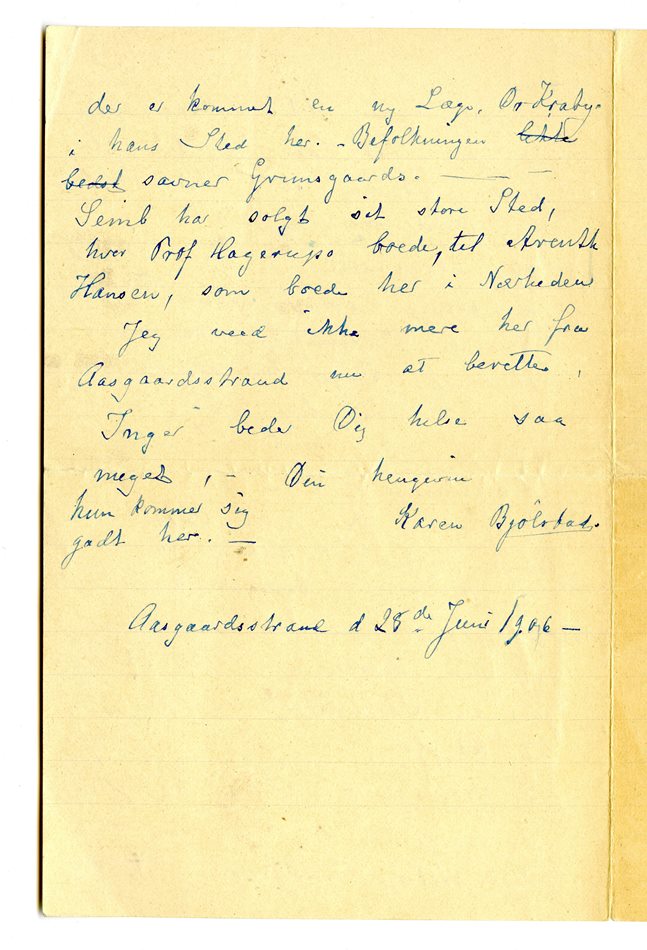 der er kommet en ny Læge, Dr Kraby.
i hans Sted her. – Befolkningen
bedst savner Grimsgaards. — —
Semb har solgt sit store Sted,
hvor Prof Hagerups boede, til Arenth
Hansen, som boede her i Nærheden
Jeg veed ikke mere her fra
Aasgaardsstrand nu at berette,
Inger beder Dig hilse saa
meget, – Din hengivne
hun kommer sig
godt her. —
Karen Bjölstad.
Aasgaardsstrand d 28de Juni 1906 –